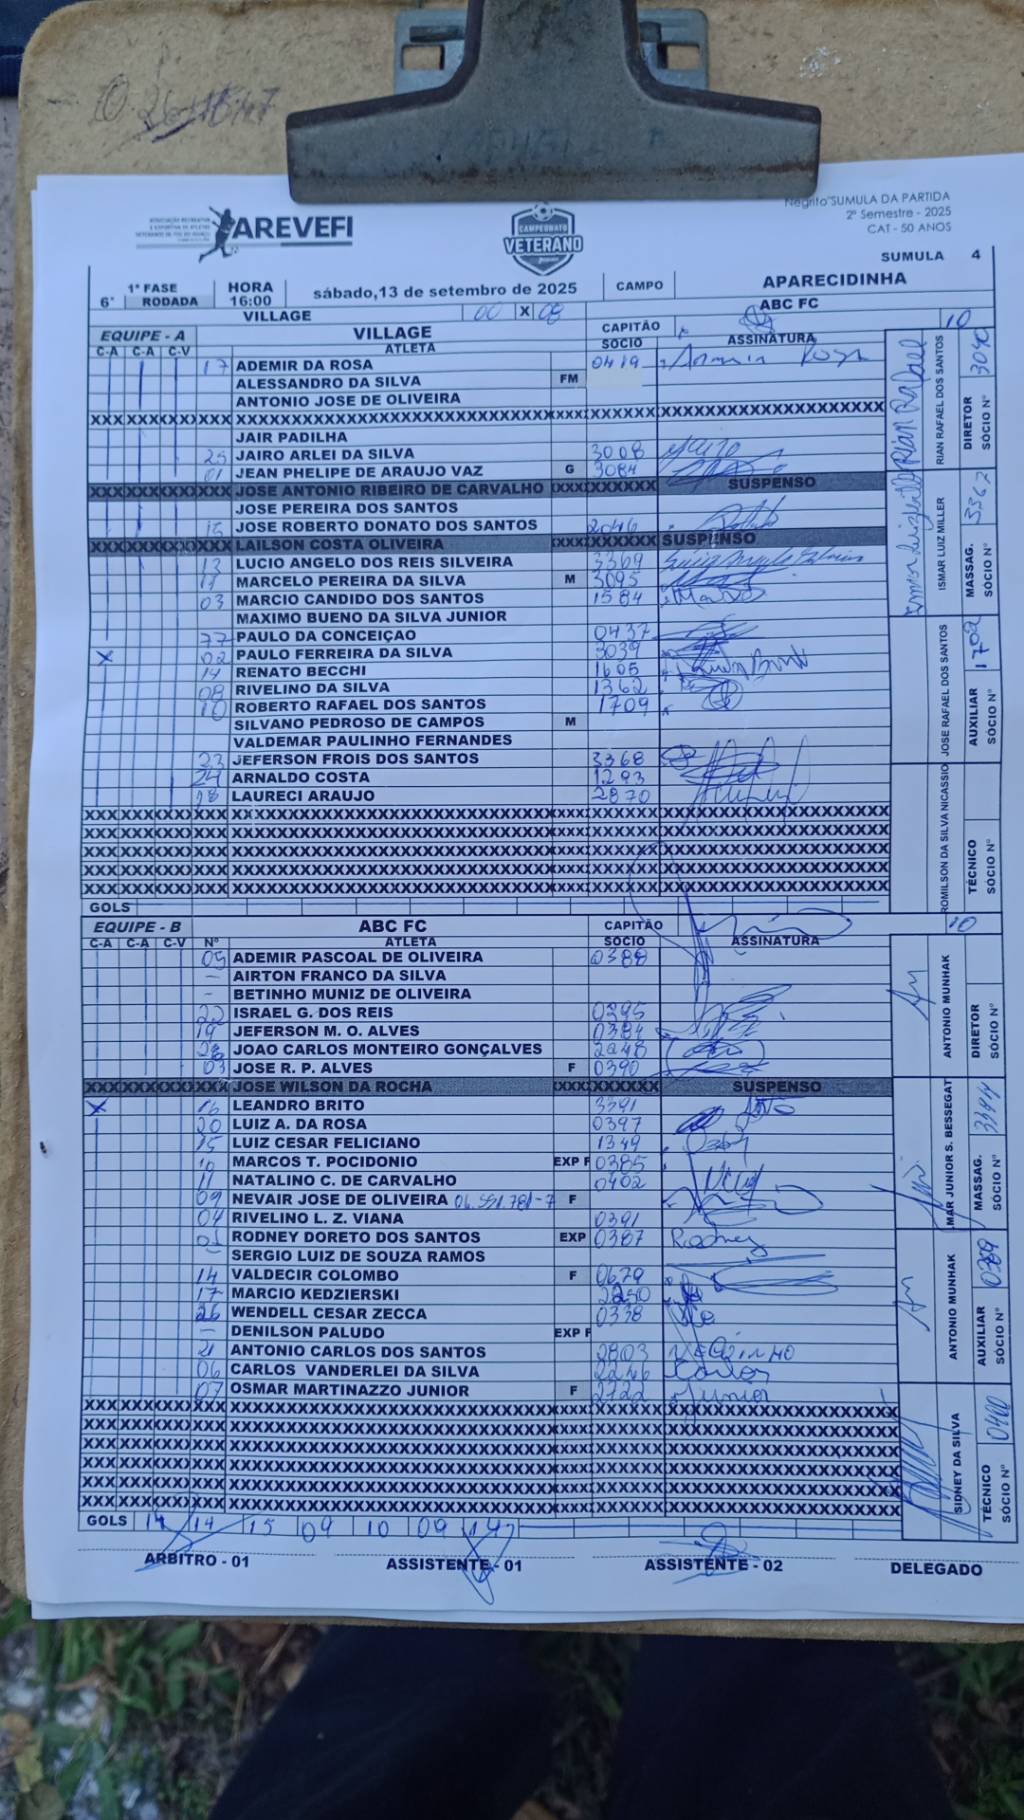 AREVEFI
CAMPEONATO
VETERANO
Negrito SUMULA DA PARTIDA
2º Semestre - 2025
CAT - 50 ANOS
SUMULA 4
6° 1ª FASE RODADA HORA 16:00 sábado,13 de setembro de 2025 CAMPO APARECIDINHA
VILLAGE 00 X 08 ABC FC
EQUIPE - A VILLAGE CAPITÃO 10
C-A C-A C-V ATLETA SOCIO ASSINATURA
17 ADEMIR DA ROSA 0419
ALESSANDRO DA SILVA FM
ANTONIO JOSE DE OLIVEIRA
JAIR PADILHA
25 JAIRO ARLEI DA SILVA 3008
01 JEAN PHELIPE DE ARAUJO VAZ G 3084
JOSE ANTONIO RIBEIRO DE CARVALHO SUSPENSO
JOSE PEREIRA DOS SANTOS
JOSE ROBERTO DONATO DOS SANTOS 2046
LAILSON COSTA OLIVEIRA SUSPENSO
LUCIO ANGELO DOS REIS SILVEIRA 3369
MARCELO PEREIRA DA SILVA M 3095
03 MARCIO CANDIDO DOS SANTOS 1584
MAXIMO BUENO DA SILVA JUNIOR
77 PAULO DA CONCEIÇAO 0437
X 02 PAULO FERREIRA DA SILVA 3039
14 RENATO BECCHI 1605
08 RIVELINO DA SILVA 1362
10 ROBERTO RAFAEL DOS SANTOS 1709
SILVANO PEDROSO DE CAMPOS M
VALDEMAR PAULINHO FERNANDES
23 JEFERSON FROIS DOS SANTOS 3368
24 ARNALDO COSTA 1293
18 LAURECI ARAUJO 2870
GOLS
Rian Rafael RIAN RAFAEL DOS SANTOS DIRETOR SÓCIO Nº 3090
ISMAR LUIZ MILLER MASSAG. SÓCIO Nº 3362
JOSE RAFAEL DOS SANTOS AUXILIAR SÓCIO Nº 1702
ROMILSON DA SILVA NICASSIO TÉCNICO SÓCIO Nº
EQUIPE - B ABC FC CAPITÃO 10
C-A C-A C-V Nº ATLETA SOCIO ASSINATURA
05 ADEMIR PASCOAL DE OLIVEIRA 0388
- AIRTON FRANCO DA SILVA
- BETINHO MUNIZ DE OLIVEIRA
22 ISRAEL G. DOS REIS 0395
19 JEFERSON M. O. ALVES 0384
JOAO CARLOS MONTEIRO GONÇALVES 2948
03 JOSE R. P. ALVES F 0390
JOSE WILSON DA ROCHA SUSPENSO
X 16 LEANDRO BRITO 3391
20 LUIZ A. DA ROSA 0397
15 LUIZ CESAR FELICIANO 1349
MARCOS T. POCIDONIO EXP F 0385
11 NATALINO C. DE CARVALHO 0402
09 NEVAIR JOSE DE OLIVEIRA 06.551.781-7 F
04 RIVELINO L. Z. VIANA 0391
RODNEY DORETO DOS SANTOS EXP 0387 Rodney
- SERGIO LUIZ DE SOUZA RAMOS
14 VALDECIR COLOMBO F 0679
17 MARCIO KEDZIERSKI
WENDELL CESAR ZECCA 0338
- DENILSON PALUDO EXP F
21 ANTONIO CARLOS DOS SANTOS 2803
06 CARLOS VANDERLEI DA SILVA 2246 Carlos
07 OSMAR MARTINAZZO JUNIOR F 2122 Junior
GOLS 14 14 15 09 10 09 14
ANTONIO MUNHAK DIRETOR SÓCIO Nº
MAR JUNIOR S. BESSEGAT MASSAG. SÓCIO Nº 3344
ANTONIO MUNHAK AUXILIAR SÓCIO Nº 0389
SIDNEY DA SILVA TÉCNICO SÓCIO Nº 0400
ARBITRO - 01 ASSISTENTE - 01 ASSISTENTE - 02 DELEGADO